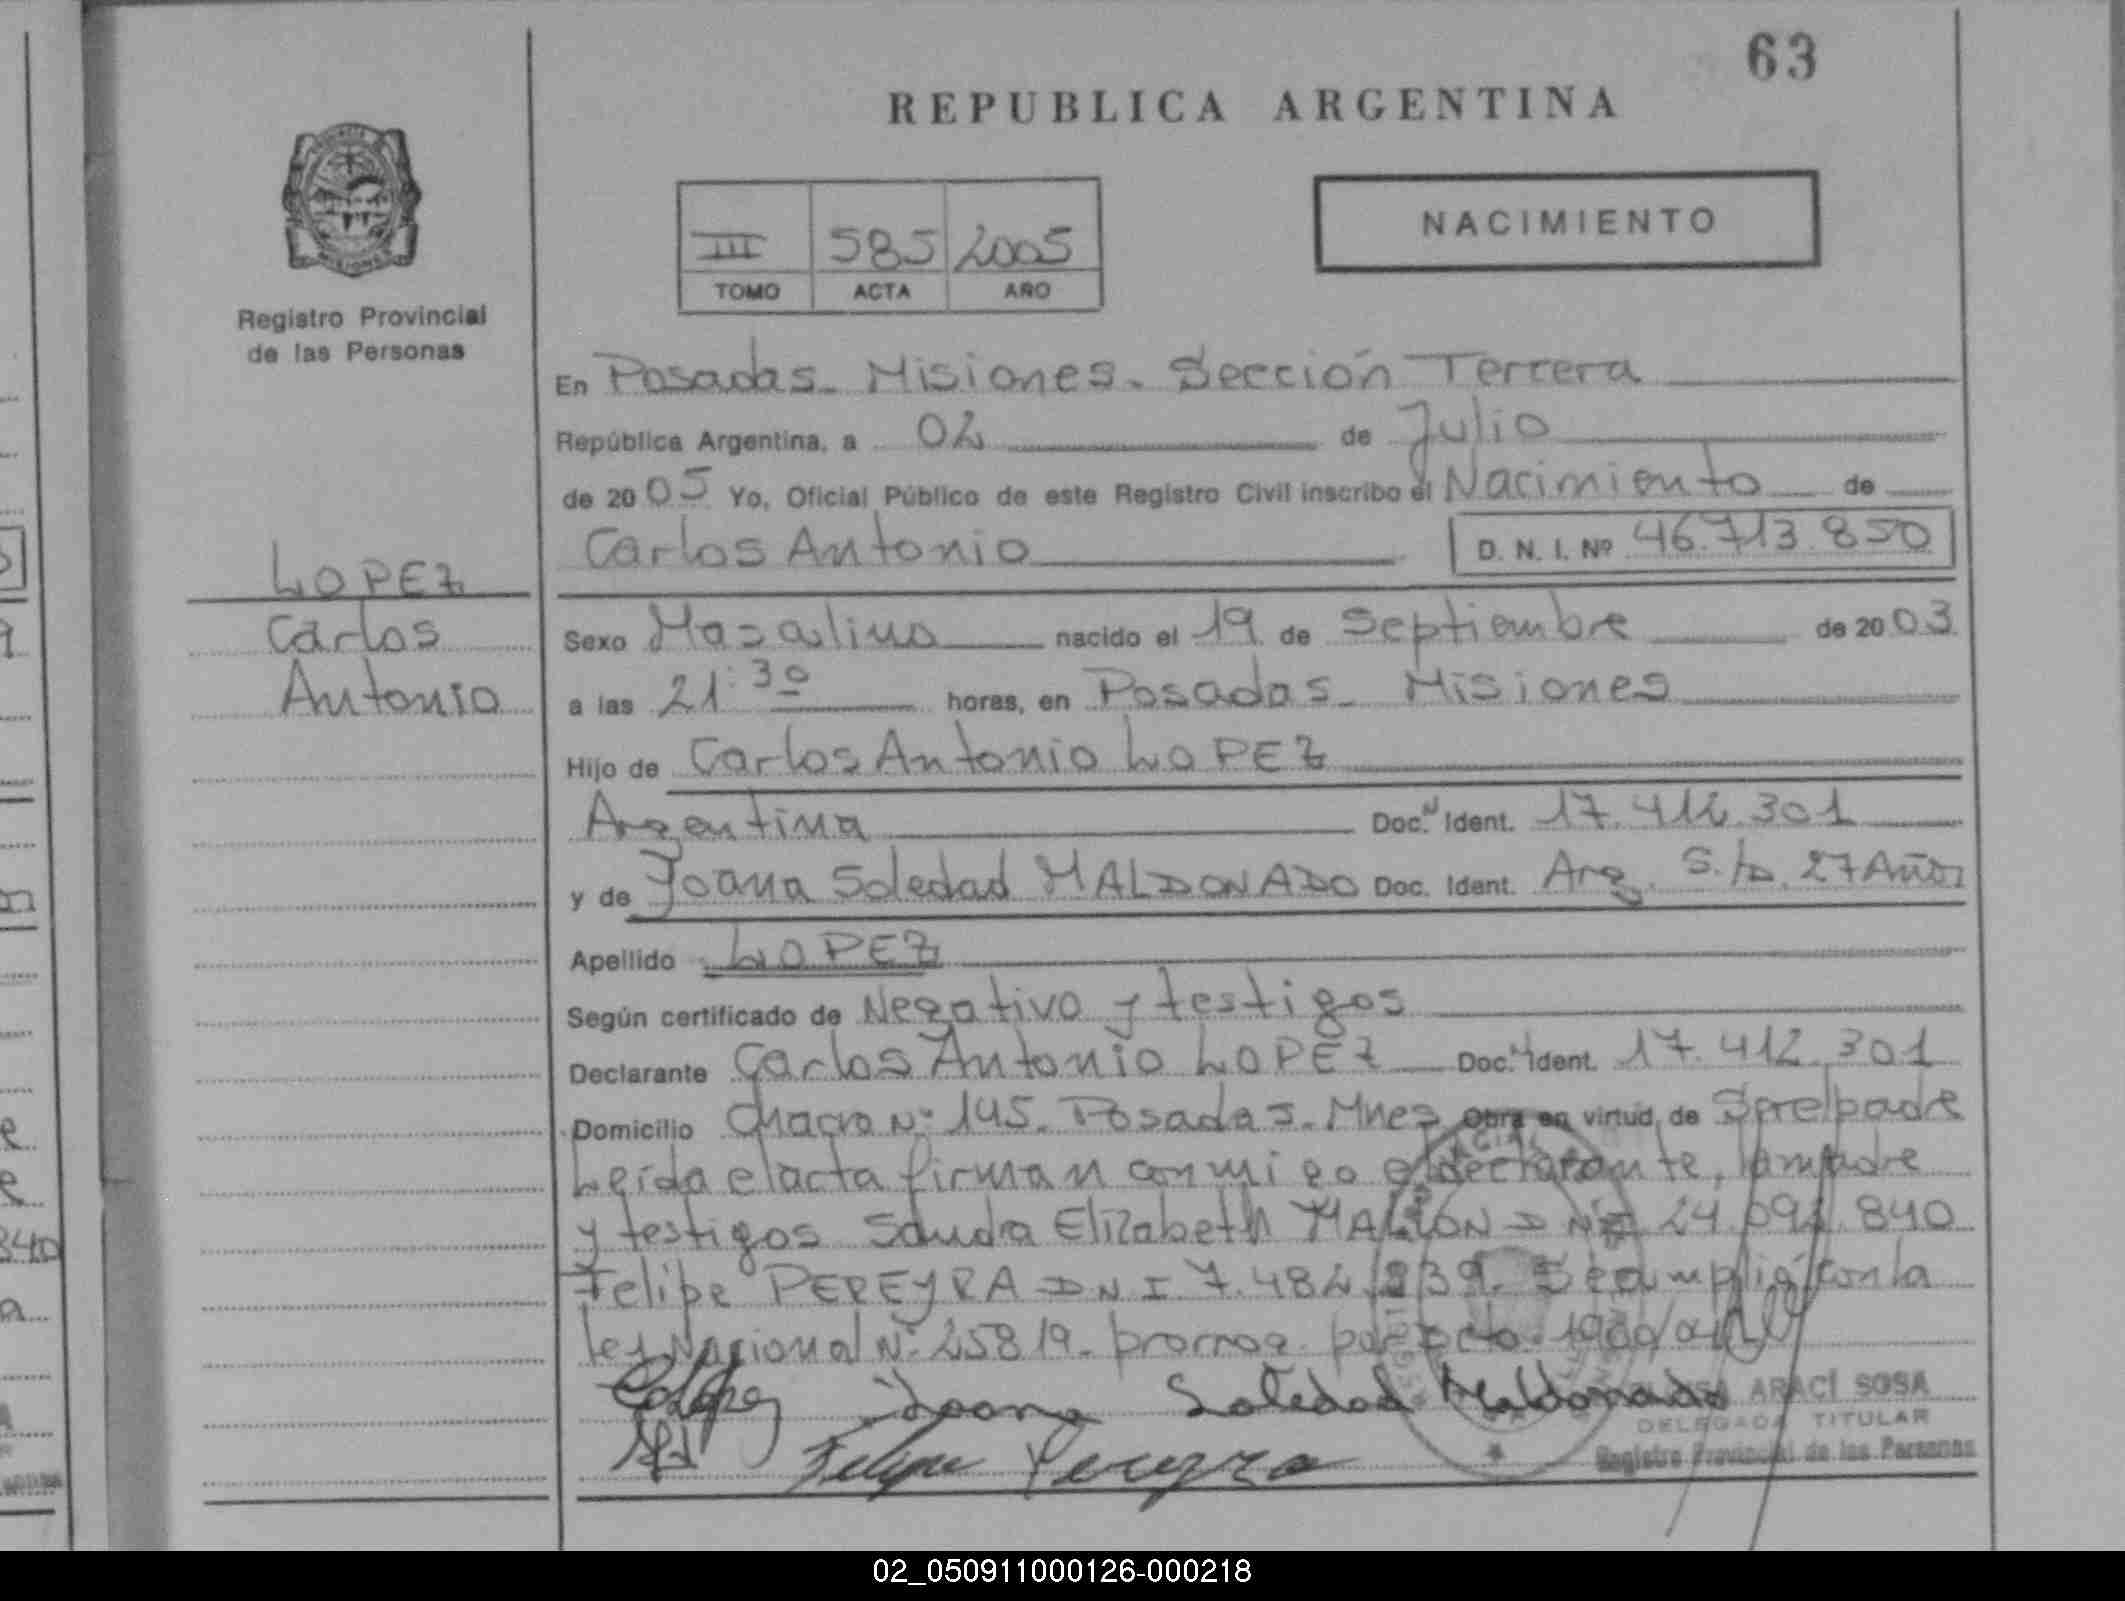 63
REPUBLICA ARGENTINA
NACIMIENTO
III 585 2005
TOMO ACTA AÑO
Registro Provincial
de las Personas
En Posadas - Misiones - Sección Tercera
República Argentina, a 02 de Julio
de 2005 Yo, Oficial Público de este Registro Civil inscribo el Nacimiento de
Carlos Antonio D. N. I. Nº 46.713.850
LOPEZ
Carlos
Antonio
Sexo Masculino nacido el 19 de Septiembre de 2003
a las 21:30 horas, en Posadas - Misiones
Hijo de Carlos Antonio LOPEZ
Argentina Doc. N Ident. 17.412.301
y de Joana Soledad MALDONADO Doc. Ident. Arg. S./D. 27 Años
Apellido LOPEZ
Según certificado de Negativo y testigos
Declarante Carlos Antonio LOPEZ Doc. Ident. 17.412.301
Domicilio Chacra Nº 145. Posadas - Mnes Obra en virtud de Ser el padre
Leída el acta firman conmigo el declarante, la madre
y testigos Sandra Elizabeth DNI 24.092.840
Felipe PEREYRA DNI 7.482.239. Se cumplió con la
ley Nacional Nº 25819. prorrog. por Dcto.
Joana Soledad Maldonado
Felipe Pereyra
ARACÍ SOSA
DELEGADA TITULAR
Registro Provincial de las Personas
02_050911000126-000218